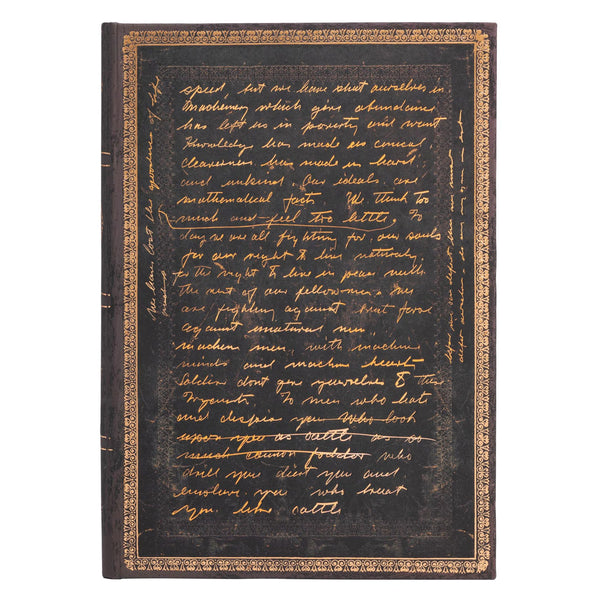 speed but we have shut ourselves in
Machinery which gives abundance
has left us in poverty and want
Knowledge has made us cynical
cleverness has made us hard
and unkind. Our ideals are
mathematical facts. We think too
much and feel too little. To
day we are all fighting for our souls
for our right to live naturally
for the right to live in peace with
the rest of our fellow men
are fighting against that force
against unnatural men
machine men, with machine
minds and machine hearts
Soldiers dont give yourselves to these
To men who hate
and despise you who look
upon you as cattle as so
much cannon fodder who
drill you diet you and
enslave you who treat
you like cattle
We have lost the goodness of life